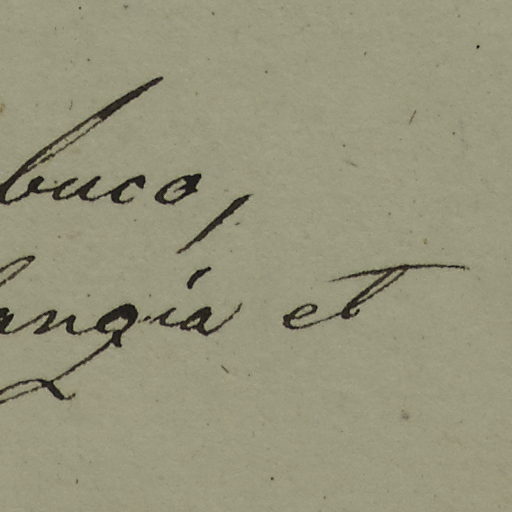 buco,
angia et